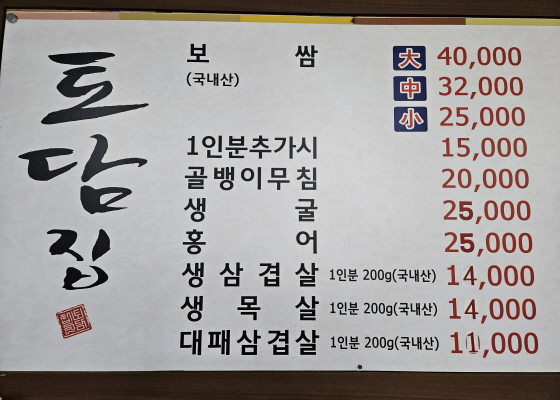 토담집
보쌈 大 40,000
(국내산) 中 32,000
小 25,000
1인분추가시 15,000
골뱅이무침 20,000
생굴 25,000
홍어 25,000
생삼겹살 1인분 200g(국내산) 14,000
생목살 1인분 200g(국내산) 14,000
대패삼겹살 1인분 200g(국내산) 11,000